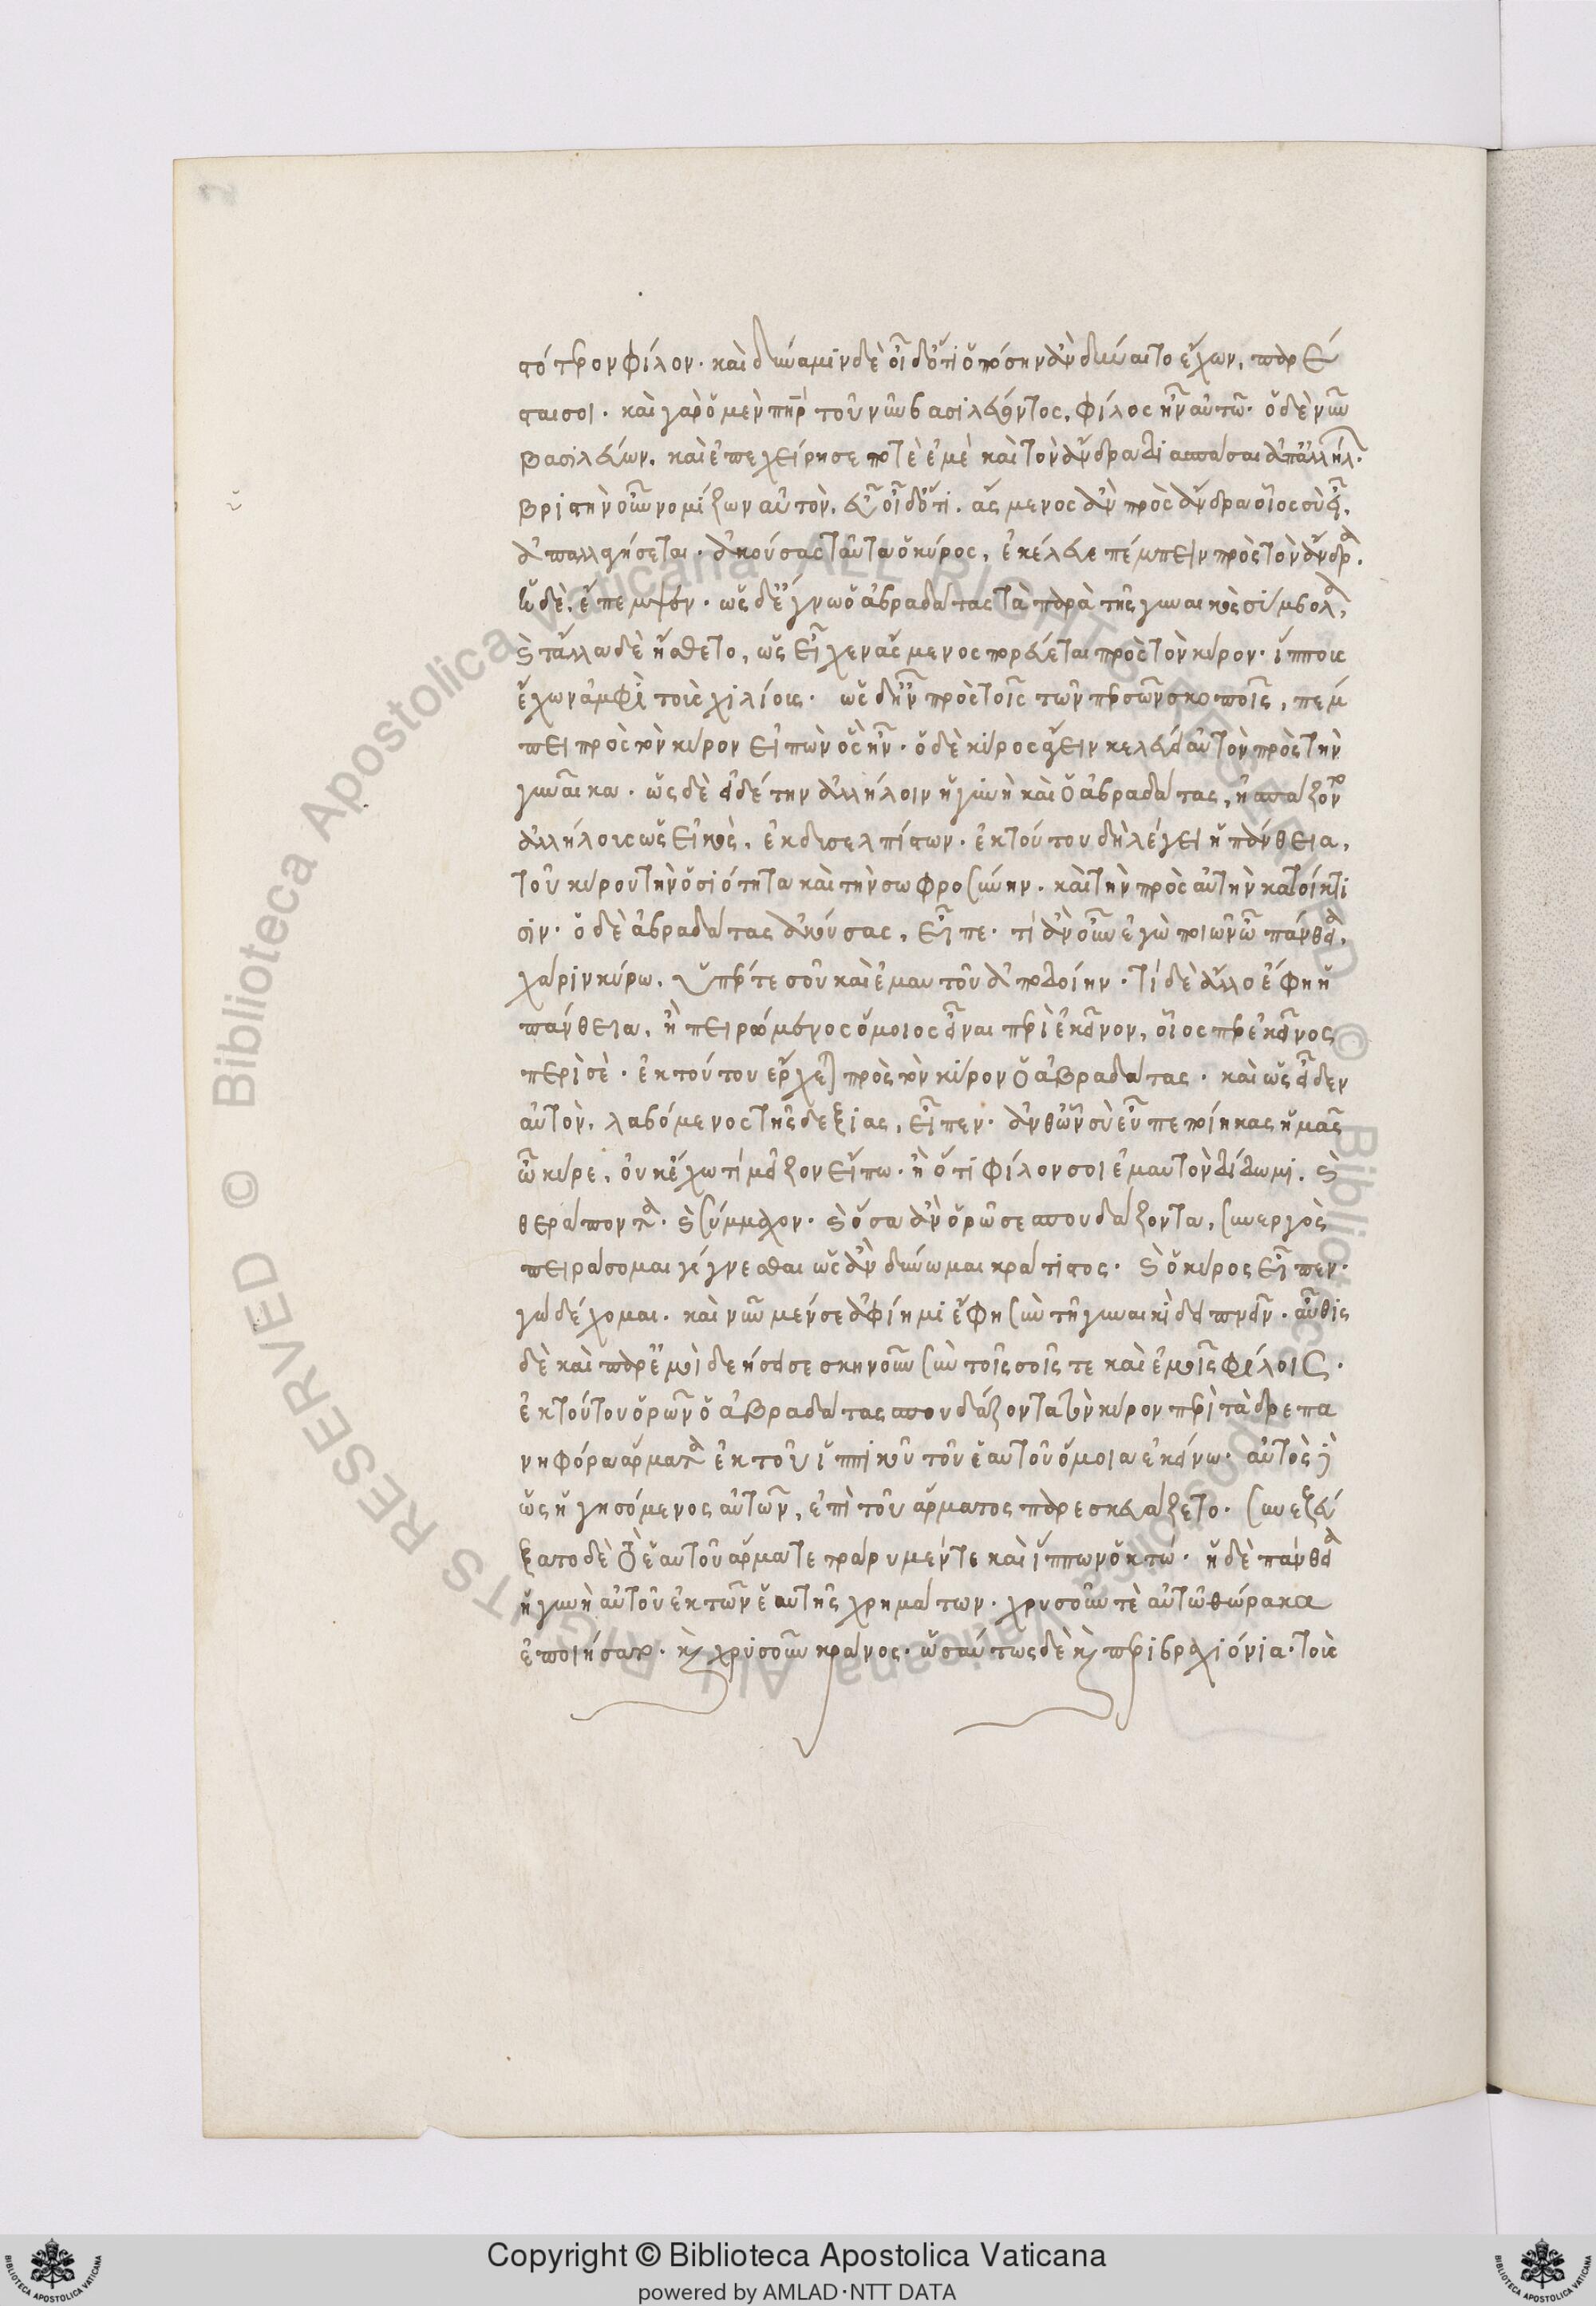 στότερον φίλον. καὶ δύναμιν δὲ οἶδ' ὅτι ὁπόσην ἂν δύναιτο ἔχων, παρέ
σταί σοι. καὶ γὰρ ὁ μὲν πὴρ τοῦ νῦν βασιλεύοντος, φίλος ἦν αὐτῶ. ὁ δὲ νῦν
βασιλεύων. καὶ ἐπεχείρησε ποτὲ ἐμὲ καὶ τὸν ἄνδρα διασπάσαι ἀπ' ἀλλήλ.
βριστὴν οὖν νομίζων αὐτὸν. εὖ οἶδ' ὅτι. ἄσμενος ἂν πρὸς ἄνδρα οἷος σὺ εἶ,
ἀπαλλαγήσεται. ἀκούσας ταῦτα ὁ κύρος, ἐκέλευε πέμπειν πρὸς τὸν ἄνδρα.
ἡ δὲ, ἔπεμψεν. ὡς δ' ἔγνω ὁ ἀβραδάτας τὰ παρὰ τῆς γυναικὸς σύμβολα,
καὶ τἆλλα δὲ ἤσθετο, ὡς εἶχεν ἄσμενος πορεύεται πρὸς τὸν κύρον. ἵππους
ἔχων ἀμφὶ τοὺς χιλίους. ὡς δ' ἦν πρὸς τοῖς τῶν περσῶν σκοποῖς, πέμ
πει πρὸς τὸν κύρον εἰπὼν ὃς ἦν. ὁ δὲ κύρος ἄγειν κελεύει αὐτὸν πρὸς τὴν
γυναῖκα. ὡς δὲ εἰδέτην ἀλλήλοιν ἡ γυνὴ καὶ ὁ ἀβραδάτας, ἠσπάζοντο
ἀλλήλους ὡς εἰκὸς, ἐκ δυσελπίστων. ἐκ τούτου δὴ λέγει ἡ πάνθεια,
τοῦ κύρου τὴν ὁσιότητα καὶ τὴν σωφροσύνην. καὶ τὴν πρὸς αὐτὴν κατοίκτι
σιν. ὁ δὲ ἀβραδάτας ἀκούσας, εἶπε. τί ἂν οὖν ἐγὼ ποιῶν ὦ πάνθεια,
χάριν κύρω. ὑπέρ τε σοῦ καὶ ἐμαυτοῦ ἀποδοίην. τί δὲ ἄλλο ἔφη ἡ
πάνθεια, ἢ πειρώμενος ὅμοιος εἶναι περὶ ἐκεῖνον, οἷός περ ἐκεῖνος
περὶ σὲ. ἐκ τούτου ἔρχεται πρὸς τὸν κύρον ὁ ἀβραδάτας. καὶ ὡς εἶδεν
αὐτὸν, λαβόμενος τῆς δεξιας, εἶπεν. ἀνθ' ὧν σὺ εὖ πεποίηκας ἡμᾶς
ὦ κύρε, οὐκ ἔχω τί μεῖζον εἴπω. ἢ ὅτι φίλον σοι ἐμαυτὸν δίδωμι. καὶ
θεράποντα. καὶ σύμμαχον. καὶ ὅσα ἂν ὁρῶ σε σπουδάζοντα, συνεργὸς
πειράσομαι γίγνεσθαι ὡς ἂν δύνωμαι κράτιστος. καὶ ὁ κύρος εἶπεν.
γὼ δέχομαι. καὶ νῦν μέν σε ἀφίημι ἔφη σὺν τῆ γυναικὶ δειπνεῖν. αὖθις
δὲ καὶ παρ' ἐμοὶ δεήσει σε σκηνοῦν σὺν τοῖς σοῖς τε καὶ ἐμοῖς φίλοις.
ἐκ τούτου ὁρῶν ὁ ἀβραδάτας σπουδάζοντα τὸν κύρον περὶ τὰ δρεπα
νηφόρα ἅρματα ἐκ τοῦ ἱππικοῦ τοῦ ἑαυτοῦ ὅμοια ἐκείνω. αὐτὸς δὲ
ὡς ἡγησόμενος αὐτῶν, ἐπὶ τοῦ ἅρματος παρεσκευάζετο. συνεζεύ
ξατο δὲ τὸ ἑαυτοῦ ἅρμα τετραρυμέν τε καὶ ἵππων ὀκτώ. ἡ δὲ πάνθεια
ἡ γυνὴ αὐτοῦ ἐκ τῶν ἑαυτῆς χρημάτων. χρυσοῦν τὲ αὐτῶ θώρακα
ἐποιήσατο. καὶ χρυσοῦν κράνος. ὡσαύτως δὲ καὶ περιβραχιόνια. τοὺς
Copyright © Biblioteca Apostolica Vaticana
powered by AMLAD·NTT DATA